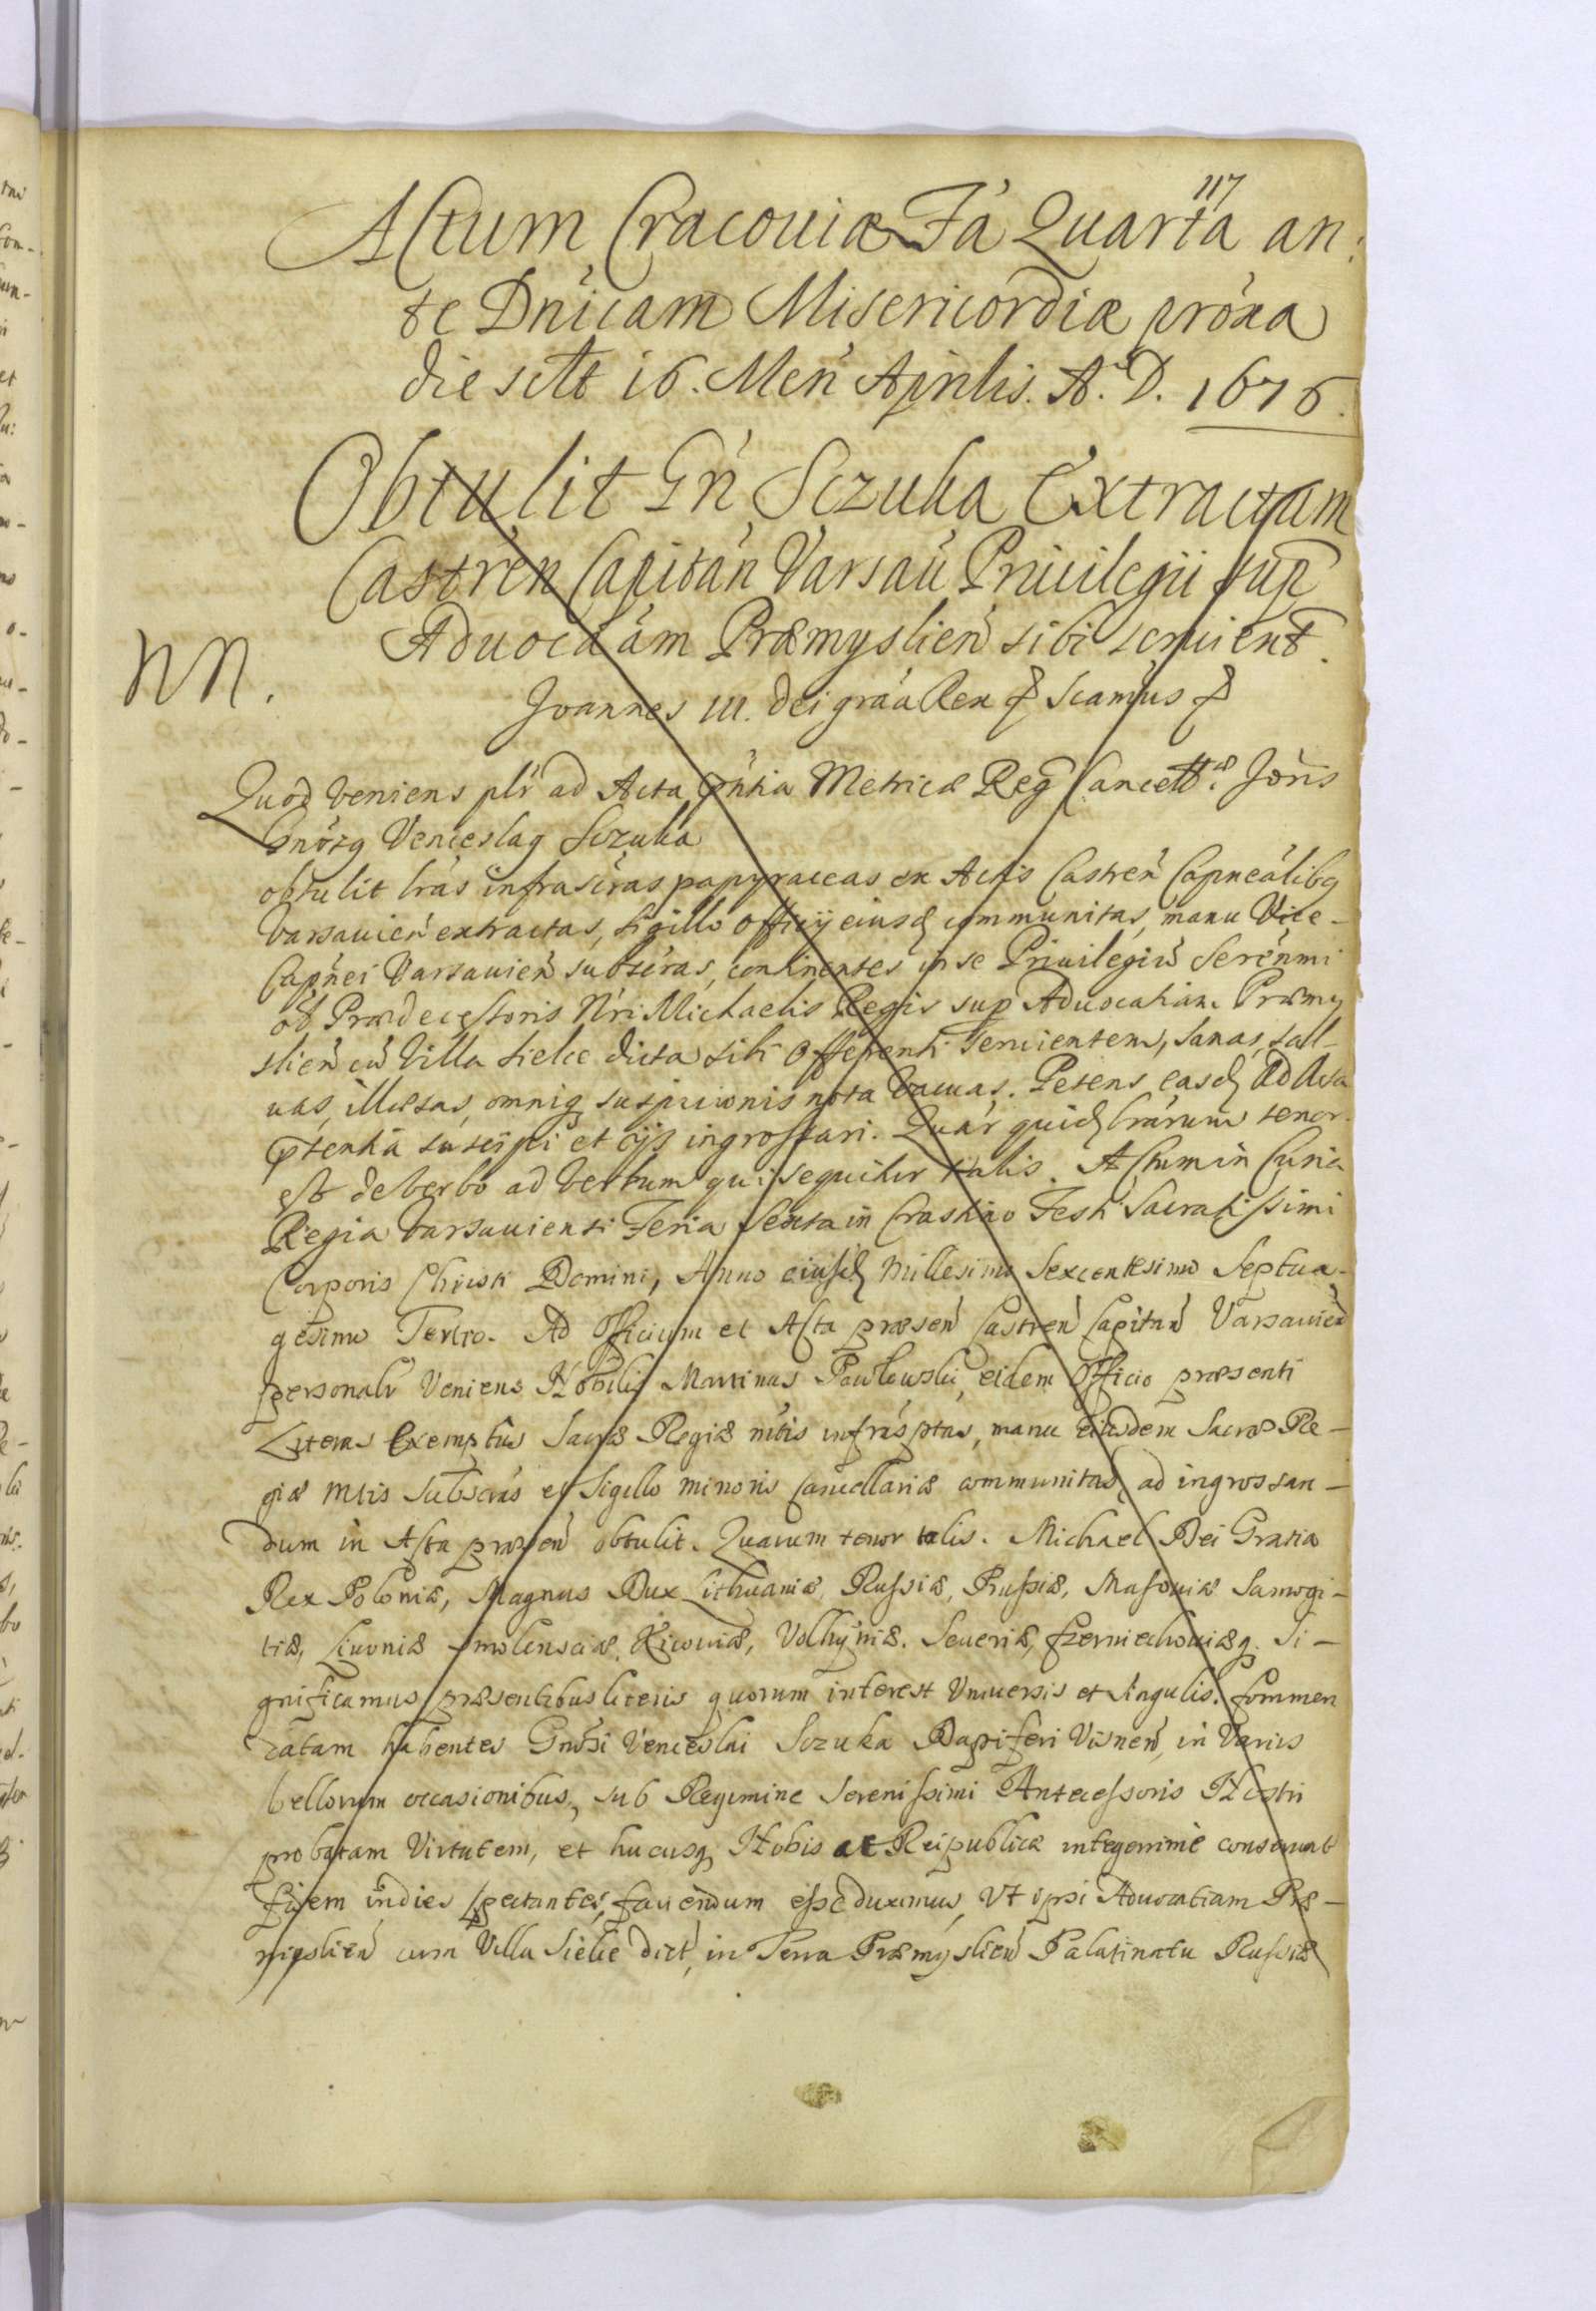 117
Actum Cracouiæ Fa Quarta an:
te Dnicam Misericordiæ proxa
die scilt 16. Men Aprilis. A. D. 1676.
Obtulit Gn Sczuka Extractam
Castren Capitan Varsau Priuilegii sup
Aduocaam Præmyslien sibi seruient.
NN.
Joannes III. Dei graa Rex & Scamus &
Quod veniens plr ad Acta pntia Metricæ Reg Cancell. Joris
Gnosq Venceslaq Sczuka
obtulit lras infrascras papyraceas ex Actis Castren Capnealibq
Varsauien extractas, sigillo officij eiusd communitas, manu Vice-
Capnei Varsauien subscras, continentes in se Priuilegiu Serenmi
Prædecessoris Nri Michaelis Regis sup Aduocatiam Præmy
slien cu villa Sielce dicta sibi Offerenti seruientem, sanas, sal-
uas, illæsas, omniq suspicionis nota vacuas. Petens easd Ad Acta
ptentia suscipi et ijs ingrossari. Quar quid lrarum tenor
est de verbo ad verbum qui sequitur talis. Actum in Curia
Regia Varsauiensi Feria Sexta in Crastino Festi Sacratissimi
Corporis Christi Domini, Anno eiusd Millesimo Sexcentesimo Septua-
gesimo Tertio. Ad Officium et Acta præsen Castren Capitan Varsauien
personalr Veniens Nobilis Martinus Pawłowski, eidem Officio præsenti
Literas Exemptus Sacræ Regiæ mtis infrasptas, manu eiusdem Sacræ Re-
giæ Mtis Subscras et Sigillo minoris Cancellariæ communitas ad ingrossan-
dum in Acta præsen obtulit. Quarum tenor talis. Michael Dei Gratia
Rex Poloniæ, Magnus Dux Lithuaniæ, Russiæ, Prussiæ, Masouiæ Samogi-
tiæ, Liuoniæ Smolensciæ, Kiouiæ, Volhyniæ. Seueriæ, Czerniechouiæq. Si-
gnificamus præsentibus literis quorum interest Vniuersis et singulis. Commen
datam habentes Gnosi Venceslai Sczuka Dapiferi Visnen, in Varijs
bellorum occasionibus, sub Regimine Serenissimi Antecessoris Nostri
probatam Virtutem, et hucusq Nobis ac Reipublicæ integerrime conseruat
fidem indies spectantes, fauendum esse duximus, Vt ipsi Aduocatiam Præ-
mislien cum Villa Sielce dict, in Terra Præmyslien Palatinatu Russiæ